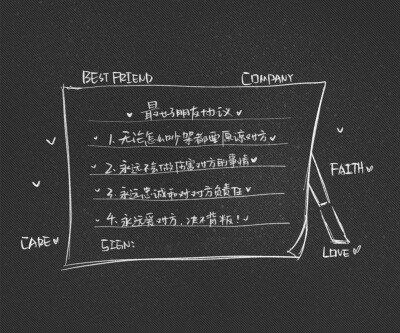 BEST FRIEND COMPANY
最好朋友协议
1.无论怎么吵架都要原谅对方
2.永远不会做伤害对方的事情
3.永远忠诚和对对方负责任
4.永远爱对方,决不背叛!
SIGN:
FAITH
CARE
LOVE